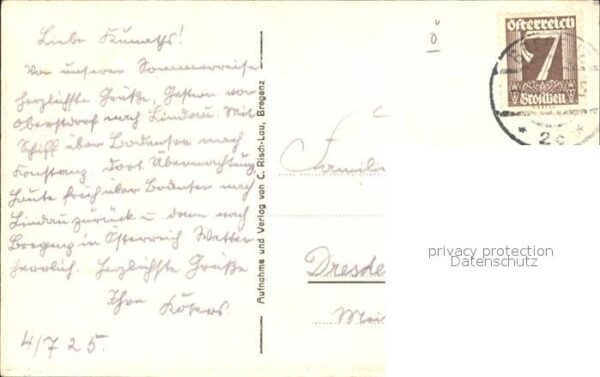 Liebe Kunaths!
Von unserer Sommerreise
herzlichste Grüße, Gestern von
Oberstdorf nach Lindau. Mit
Schiff über Bodensee nach
Konstanz. dort Übernachtung
Heute früh über Bodensee nach
Lindau zurück u. dann nach
Bregenz in Österreich Wetter
herrlich. Herzlichste Grüße
Ihre Kösers.
4/7 25.
Aufnahme und Verlag von C. Risch-Lau, Bregenz
ö
österreich
7
Groschen
Familie
Dresde
privacy protection
Datenschutz